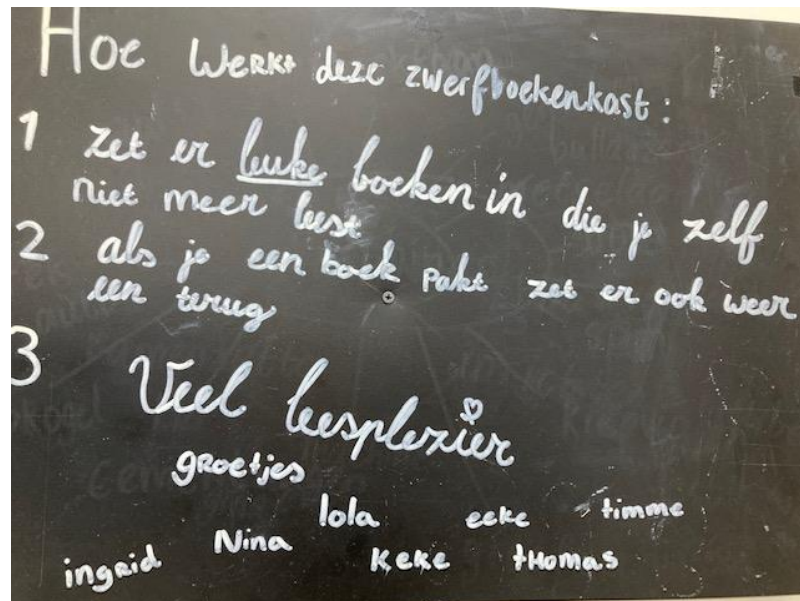 Hoe Werkt deze zwerfboekenkast:
1 zet er leuke boeken in die je zelf
niet meer leest
2 als je een boek pakt zet er ook weer
een terug
3 Veel leesplezier
groetjes
lola eeke timme
ingrid Nina Keke tHomas